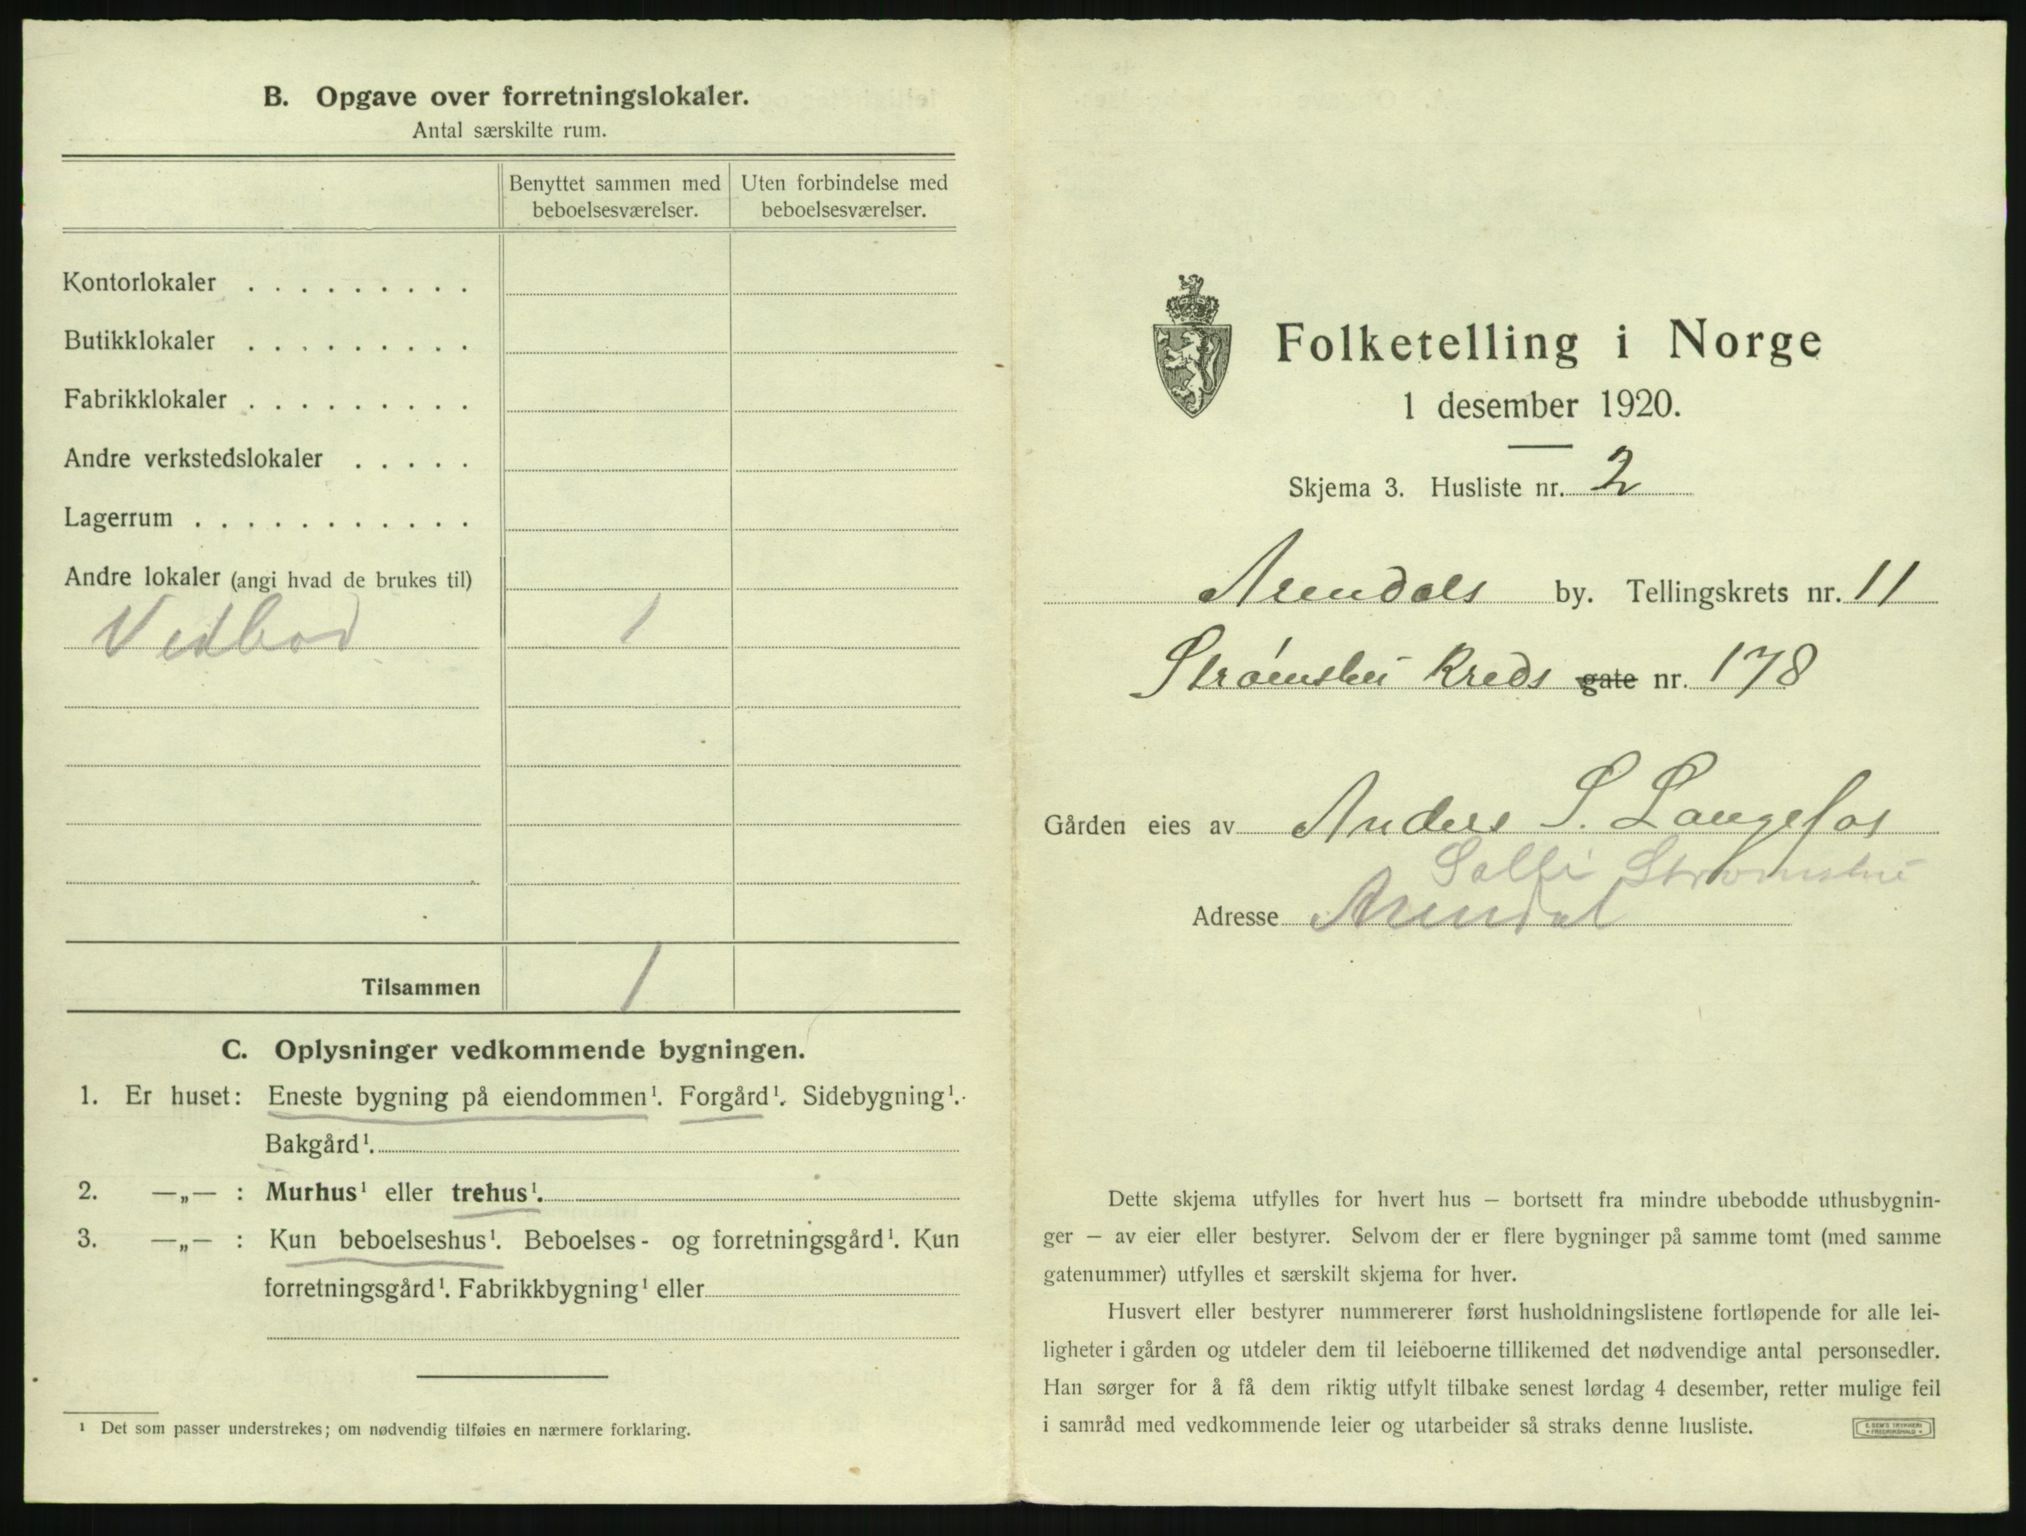 B. Opgave over forretningslokaler.
Antal særskilte rum.
Benyttet sammen med beboelsesværelser.
Uten forbindelse med beboelsesværelser.
Kontorlokaler . . . . . . . . .
Butikklokaler . . . . . . . . .
Fabrikklokaler . . . . . . . . .
Andre verkstedslokaler . . . . .
Lagerrum . . . . . . . . . . .
Andre lokaler (angi hvad de brukes til)
Vedbod 1
Tilsammen 1
C. Oplysninger vedkommende bygningen.
1. Er huset: Eneste bygning på eiendommen¹. Forgård¹. Sidebygning¹.
Bakgård¹.
2. —„— : Murhus¹ eller trehus¹.
3. —„— : Kun beboelseshus¹. Beboelses- og forretningsgård¹. Kun
forretningsgård¹. Fabrikkbygning¹ eller
¹ Det som passer understrekes; om nødvendig tilføies en nærmere forklaring.
Folketelling i Norge
1 desember 1920.
Skjema 3. Husliste nr. 2
Arendals by. Tellingskrets nr. 11
Strømsbu Kreds gate nr. 178
Gården eies av Anders S. Langefos
Strømsbu
Adresse Arendal
Dette skjema utfylles for hvert hus — bortsett fra mindre ubebodde uthusbygnin-
ger — av eier eller bestyrer. Selvom der er flere bygninger på samme tomt (med samme
gatenummer) utfylles et særskilt skjema for hver.
Husvert eller bestyrer nummererer først husholdningslistene fortløpende for alle lei-
ligheter i gården og utdeler dem til leieboerne tillikemed det nødvendige antal personsedler.
Han sørger for å få dem riktig utfylt tilbake senest lørdag 4 desember, retter mulige feil
i samråd med vedkommende leier og utarbeider så straks denne husliste.
E. SEM'S TRYKKERI
FREDRIKSHALD